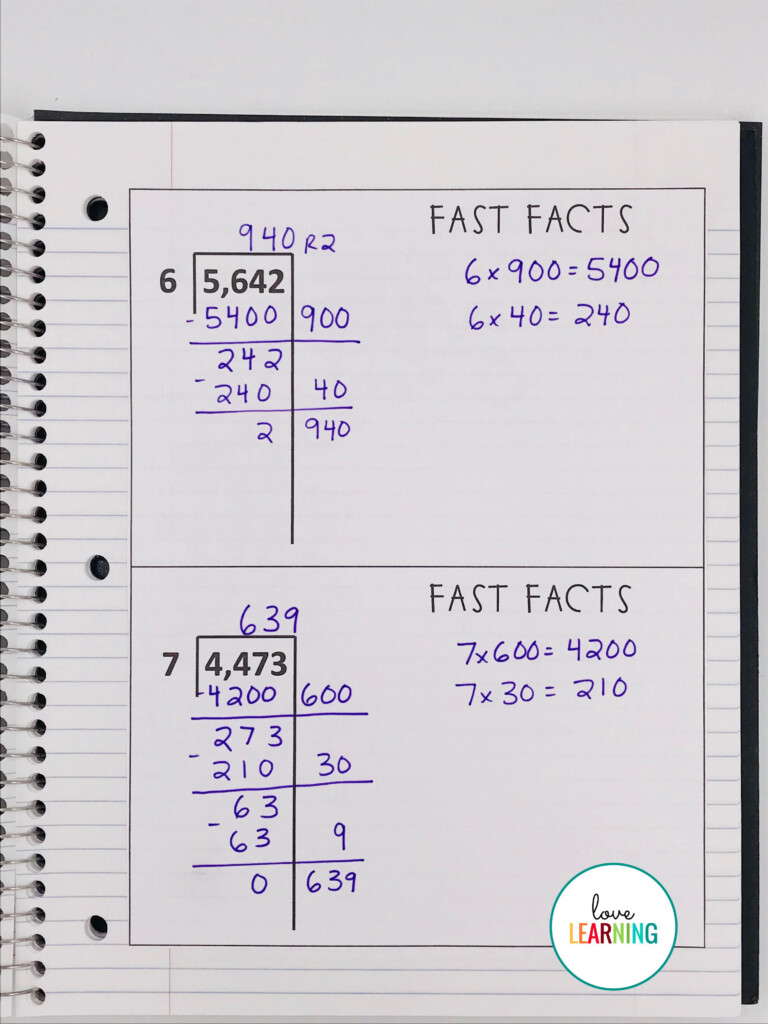 FAST FACTS
940 R2
6 5,642
6 x 900 = 5400
- 5400 900
6 x 40 = 240
242
- 240 40
2 940
FAST FACTS
639
7 4,473
7 x 600 = 4200
- 4200 600
7 x 30 = 210
273
- 210 30
63
- 63 9
0 639
love
LEARNING